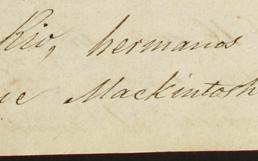 Rio, hermanos
ue Mackintosh